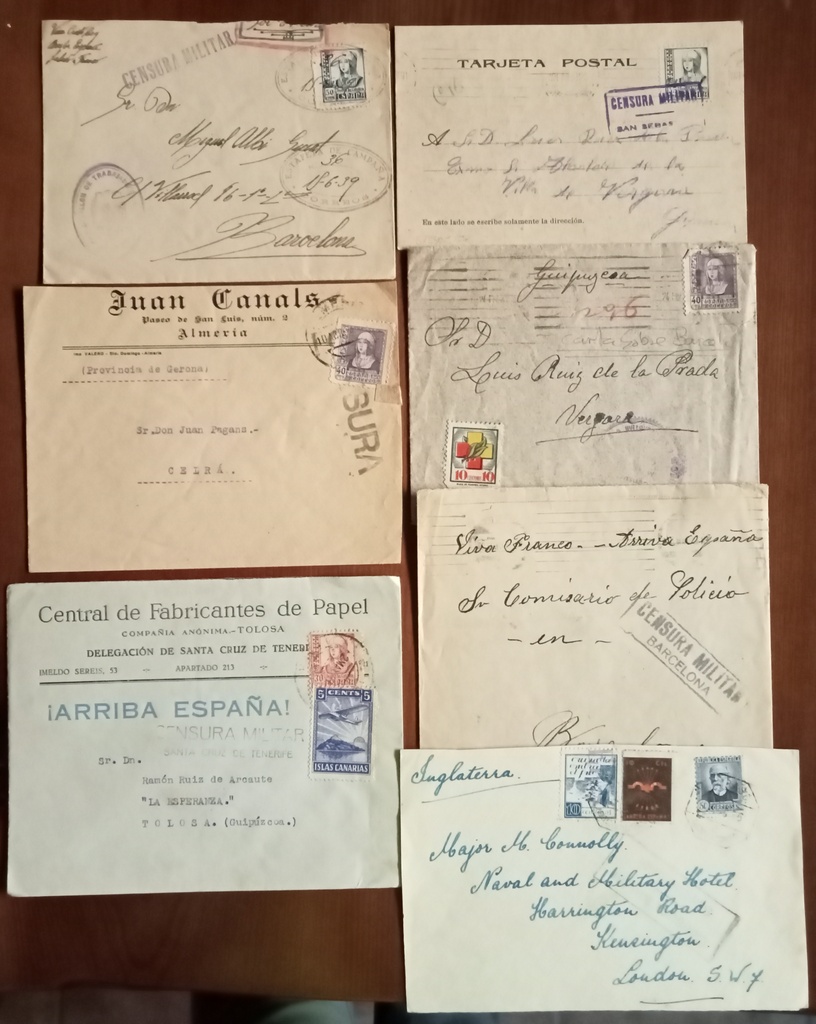 CENSURA MILITAR
Sr Dn
Miguel Albi
36
18-6-39
Barcelona
TARJETA POSTAL
CENSURA MILITAR
SAN SEBAS
A
Villa de Vergara
En este lado se escribe solamente la dirección.
Juan Canals
Paseo de San Luis, núm. 2
Almería
40
(Provincia de Gerona)
SURA
Sr.Don Juan Pagans.-
CELRÁ.
Guipuzcoa
40
296
Sr D
Luis Ruiz de la Prada
Vergara
10 10
Central de Fabricantes de Papel
COMPAÑIA ANÓNIMA.-TOLOSA
DELEGACIÓN DE SANTA CRUZ DE TENERI
IMELDO SERIS, 53 -:- APARTADO 213 -:-
5 CENTS 5
¡ARRIBA ESPAÑA!
CENSURA MILITAR
SANTA CRUZ DE TENERIFE
ISLAS CANARIAS
Sr. Dn.
Ramón Ruiz de Arcaute
"LA ESPERANZA."
TOLOSA. (Guipúzcoa.)
Viva Franco - - Arriva España
Sr Comisario de Policia
- en -
CENSURA MILITAR
BARCELONA
Inglaterra.
Major M. Connolly.
Naval and Military Hotel.
Harrington Road.
Kensington.
London. S.W.7.